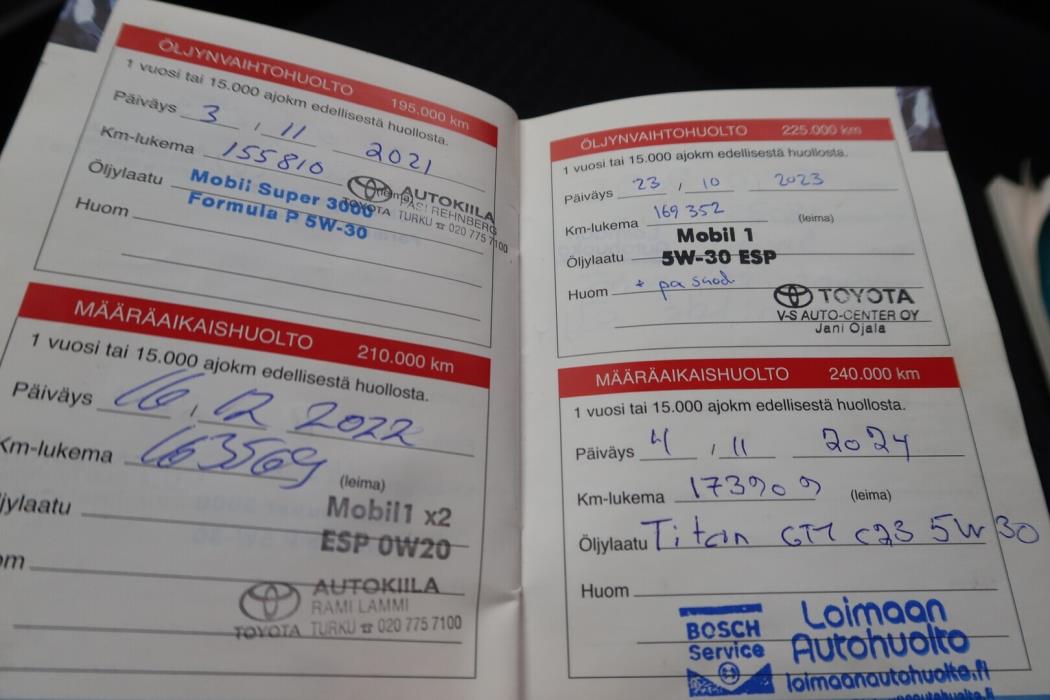 ÖLJYNVAIHTOHUOLTO 195.000 km
1 vuosi tai 15.000 ajokm edellisestä huollosta.
Päiväys 3 / 11 2021
Km-lukema 155810 (leima)
Öljylaatu Mobil Super 3000
Formula P 5W-30
Huom
AUTOKIILA
PASI REHNBERG
TOYOTA TURKU ☎ 020 775 7100
MÄÄRÄAIKAISHUOLTO 210.000 km
1 vuosi tai 15.000 ajokm edellisestä huollosta.
Päiväys 16 , 12 2022
Km-lukema 163569
(leima)
jylaatu Mobil1 x2
ESP 0W20
om
AUTOKIILA
RAMI LAMMI
TOYOTA TURKU ☎ 020 775 7100
ÖLJYNVAIHTOHUOLTO 225.000 km
1 vuosi tai 15.000 ajokm edellisestä huollosta.
Päiväys 23 / 10 2023
Km-lukema 169 352 (leima)
Mobil 1
Öljylaatu 5W-30 ESP
Huom
TOYOTA
V-S AUTO-CENTER OY
Jani Ojala
MÄÄRÄAIKAISHUOLTO 240.000 km
1 vuosi tai 15.000 ajokm edellisestä huollosta.
Päiväys 4 / 11 2024
Km-lukema 173909 (leima)
Öljylaatu Titan GT1 C23 5W30
Huom
BOSCH
Service
Loimaan
Autohuolto
loimaanautohuolto.fi